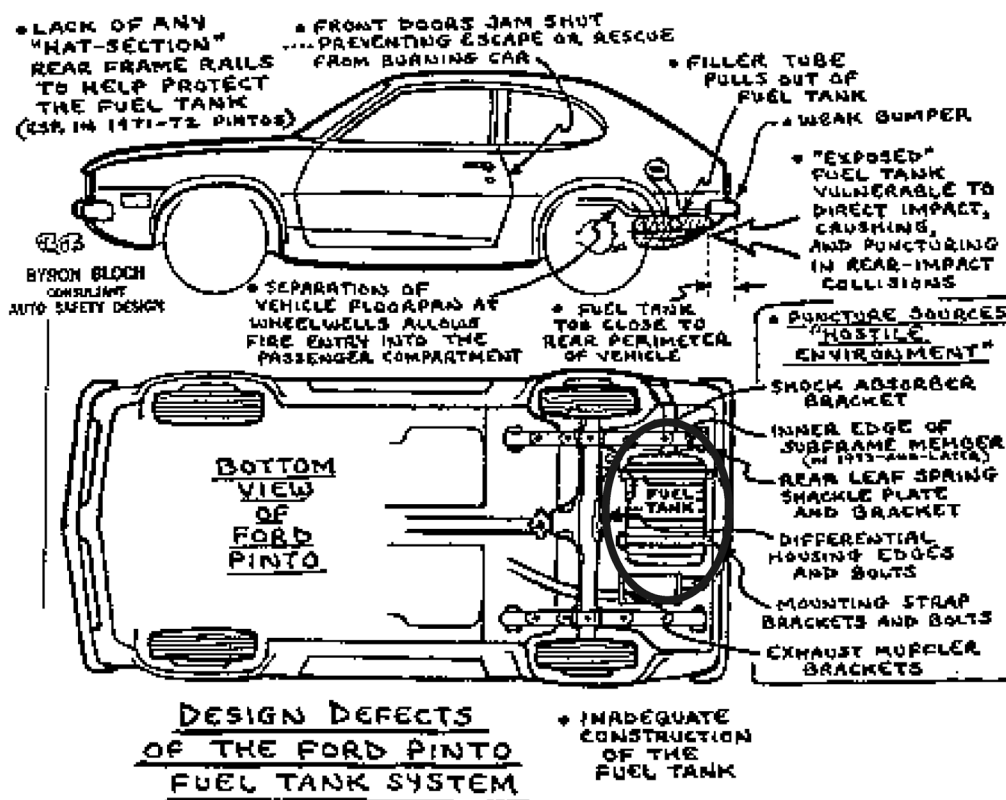 • LACK OF ANY
"HAT-SECTION"
REAR FRAME RAILS
TO HELP PROTECT
THE FUEL TANK
(ESP. IN 1971-72 PINTOS)
• FRONT DOORS JAM SHUT
PREVENTING ESCAPE OR RESCUE
FROM BURNING CAR
• FILLER TUBE
PULLS OUT OF
FUEL TANK
• WEAK BUMPER
• "EXPOSED"
FUEL TANK
VULNERABLE TO
DIRECT IMPACT,
CRUSHING,
AND PUNCTURING
IN REAR-IMPACT
COLLISIONS
BYRON BLOCH
CONSULTANT
AUTO SAFETY DESIGN
• SEPARATION OF
VEHICLE FLOORPAN AT
WHEELWELLS ALLOWS
FIRE ENTRY INTO THE
PASSENGER COMPARTMENT
• FUEL TANK
TOO CLOSE TO
REAR PERIMETER
OF VEHICLE
• PUNCTURE SOURCES
"HOSTILE
ENVIRONMENT"
SHOCK ABSORBER
BRACKET
INNER EDGE OF
SUBFRAME MEMBER
(IN 1973-AND-LATER)
REAR LEAF SPRING
SHACKLE PLATE
AND BRACKET
DIFFERENTIAL
HOUSING EDGES
AND BOLTS
MOUNTING STRAP
BRACKETS AND BOLTS
EXHAUST MUFFLER
BRACKETS
BOTTOM
VIEW
OF
FORD
PINTO
FUEL
TANK
DESIGN DEFECTS
OF THE FORD PINTO
FUEL TANK SYSTEM
• INADEQUATE
CONSTRUCTION
OF THE
FUEL TANK